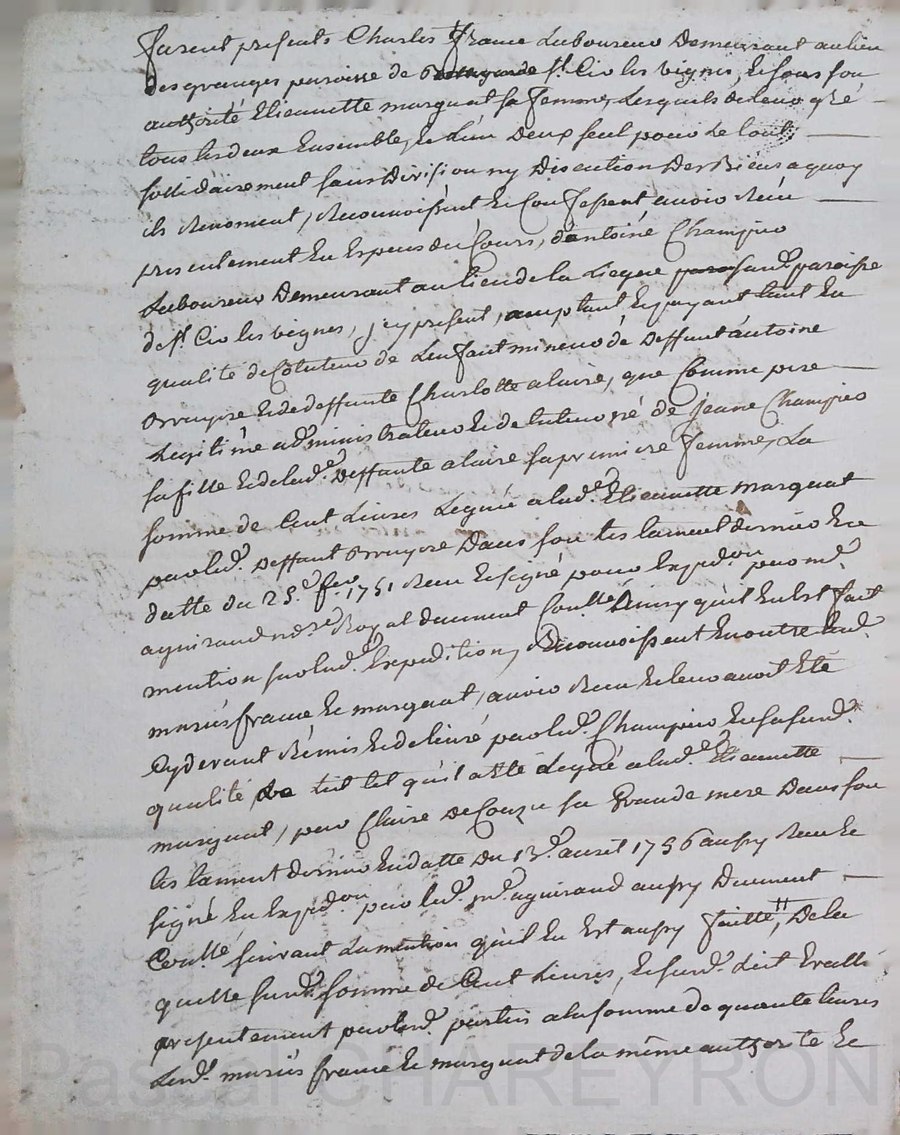 furent presents Charles france Laboureur Demeurant au lieu
des granges paroisse de St. Cir les vignes, Et sous son
authorité Etiennette marquat sa femme, Lesquels de leur gré
tous les deux Ensemble, Et L'un Deux seul pour Le tout
sollidairement sans Division ny Discution Des Biens a quoy
ils Renoncent, Reconnoissent Et Confessent avoir Reçu
presentement En Especes du Cours, d'antoine Champier
Laboureur Demeurant au lieu de la susd. paroisse
de St. Cir les vignes, j cy present, acceptant Et payant tant En
qualité de Cotuteur de L'enfant mineur de deffunt antoine
Bruyere Et de deffunte Charlotte alaire, que Comme pere
Legitime administrateur Et de tuteur né de jeane Champier
sa fille Et de lad. deffunte alaire sa premiere femme, La
somme de Cent Livres Leguée a lad. Etiennette marquat
par led. Deffunt Bruyere Dans son testament dernier En
datte du 25e. fevr. 1751 Reçu Et signé pour Expedon par me.
aguiraud nore Royal duement Conllé ainsy qu'il En Est fait
mention sur lad. Expedition, Reconnoissent En outre Lesd.
mariés france Et marquat, avoir Reçu Et leur avoit Eté
Cy devant Rémis Et delivré par led. Champier En sa susd.
qualité Le lit tel qu'il a Eté Legué a lad. Etiennette
marquat, par Claire DeCouzu sa Grande mere Dans son
testament dernier En datte Du 13e. avril 1756 aussy Reçu Et
signé En Expedon par led. me. aguiraud aussy Duement
Conllé suivant La mention qu'il En Est aussy faitte, De la
quelle susd. somme de Cent Livres, Et susd. Lit Evallué
presentement par lesd. parties a la somme de quarante livres
Lesd. mariés france Et marquat de la même authorité Et
Pascal CHAREYRON